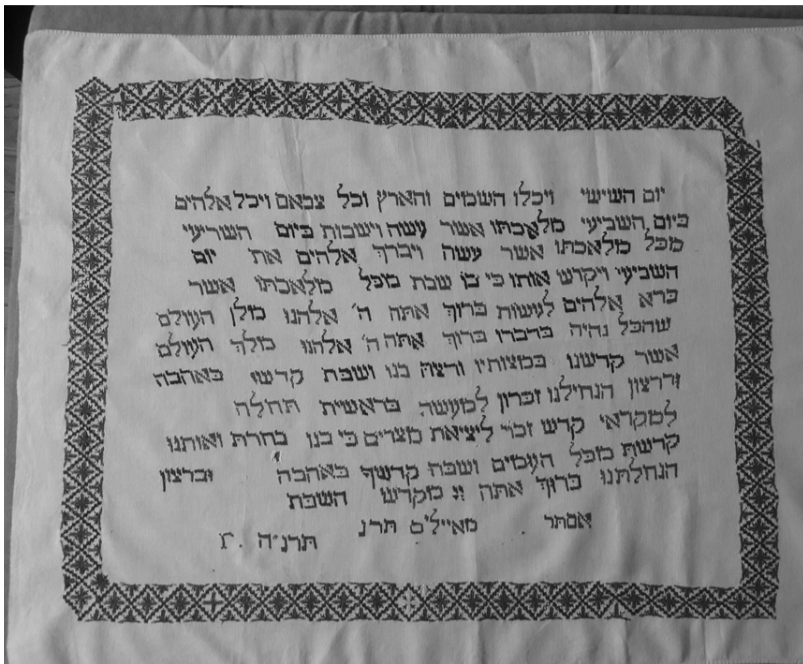 יום השישי ויכלו השמים והארץ וכל צבאם ויכל אלהים
ביום השביעי מלאכתו אשר עשה וישבות ביום השריעי
מכל מלאכתו אשר עשה ויברך אלהים את יום
השביעי ויקדש אותו כי בו שבת מכל מלאכתו אשר
ברא אלהים לעשות ברוך אתה ה' אלהנו מלן העולם
שהכל נהיה ברברו ברוך אתה ה' אלהנו מלך העולם
אשר קדשנו במצותיו ורצה בנו ושבת קדשי באהבה
ודרצון הנחילנו זכרון למעשה בראשית תחלה
למקראי קדש זכר ליציאת מצרים כי בנו בחרת ואותנו
קדשת מכל העמים ושבת קדשך באהבה וברצון
הנחלתנו ברוך אתה יי מקדש השבת
אסתר מאיילים תרנ
תרנ״ה